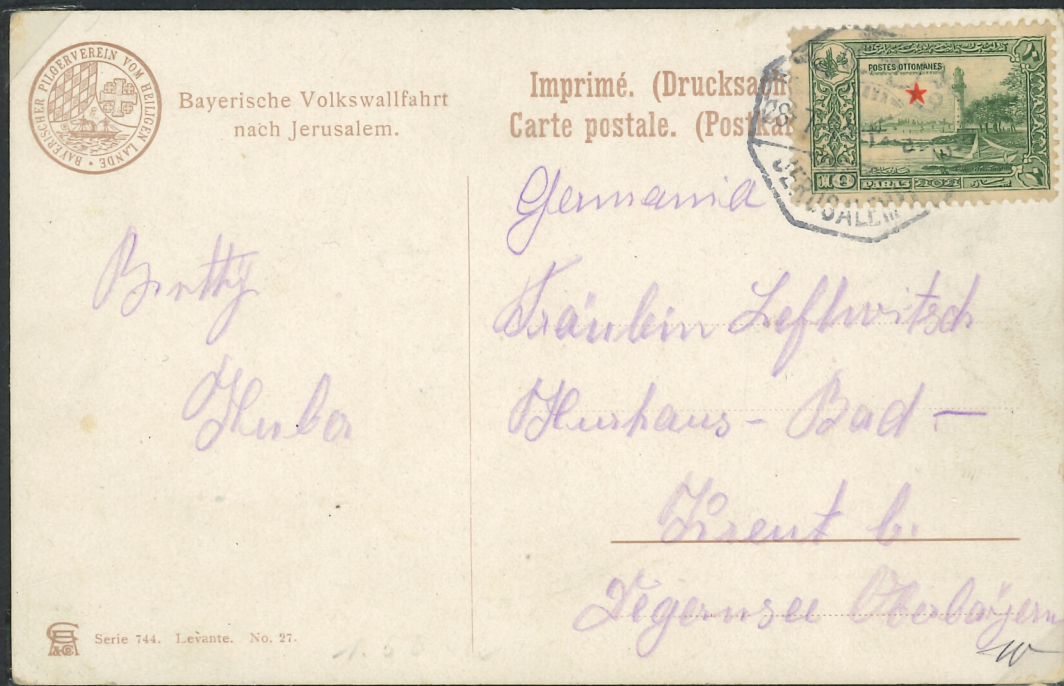 BAYERISCHER PILGERVEREIN VOM HEILIGEN LANDE
Bayerische Volkswallfahrt
nach Jerusalem.
Imprimé. (Drucksach
Carte postale. (Postkar
POSTES OTTOMANES
10 PARAS
JERUSALEM
Germania
Fräulein
Kurhaus - Bad -
Kreut b.
Tegernsee Oberbayern
Betty
Huber
Serie 744. Levante. No. 27.